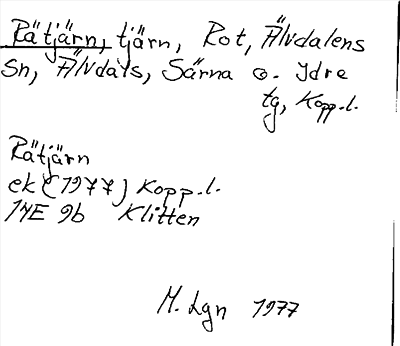 Rätjärn, tjärn, Rot, Älvdalens
sn, Älvdals, Särna o. Idre
tg, Kopp.l.
Rätjärn
ek (1977) Kopp.l.
14E 9b Klitten
M. Lgn 1977